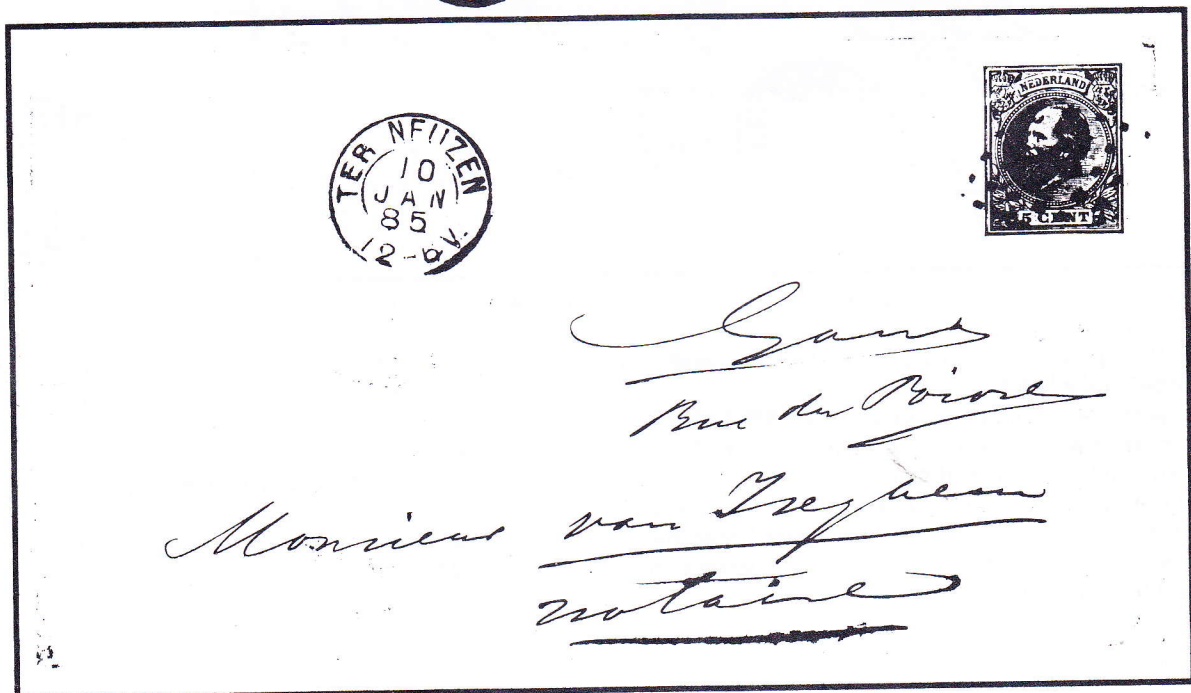 NEDERLAND
5 CENT
TER NEUZEN
10
JAN
85
12-6 V.
Gand
Rue du Poivre
Monsieur van Iseghem
notaire